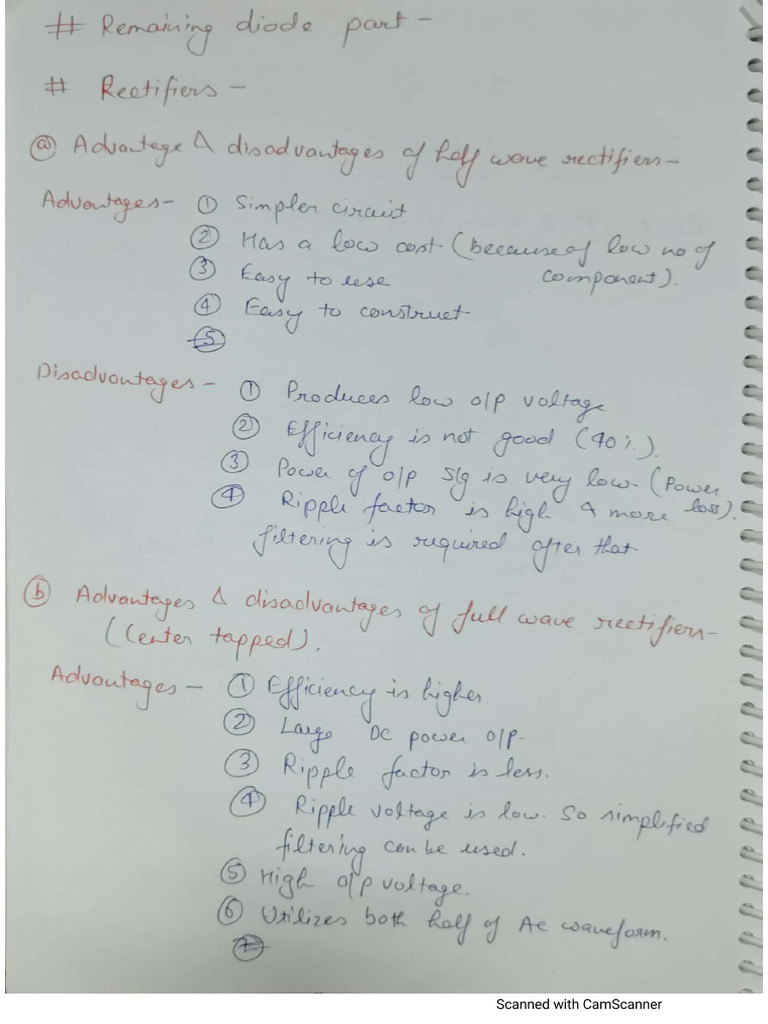 # Remaining diode part -
# Rectifiers -
ⓐ Advantage & disadvantages of half wave rectifiers -
Advantages - ① Simpler circuit
② Has a low cost (because of low no of
component).
③ Easy to use
④ Easy to construct
⑤
Disadvantages - ① Produces low o/p voltage
② Efficiency is not good (40%).
③ Power of o/p S/g is very low. (Power
loss).
④ Ripple factor is high & more
filtering is required after that
ⓑ Advantages & disadvantages of full wave rectifiers -
(Center tapped).
Advantages - ① Efficiency is higher
② Large DC power o/p.
③ Ripple factor is less.
④ Ripple voltage is low. So simplified
filtering can be used.
⑤ High o/p voltage.
⑥ Utilizes both half of Ac waveform.
Scanned with CamScanner